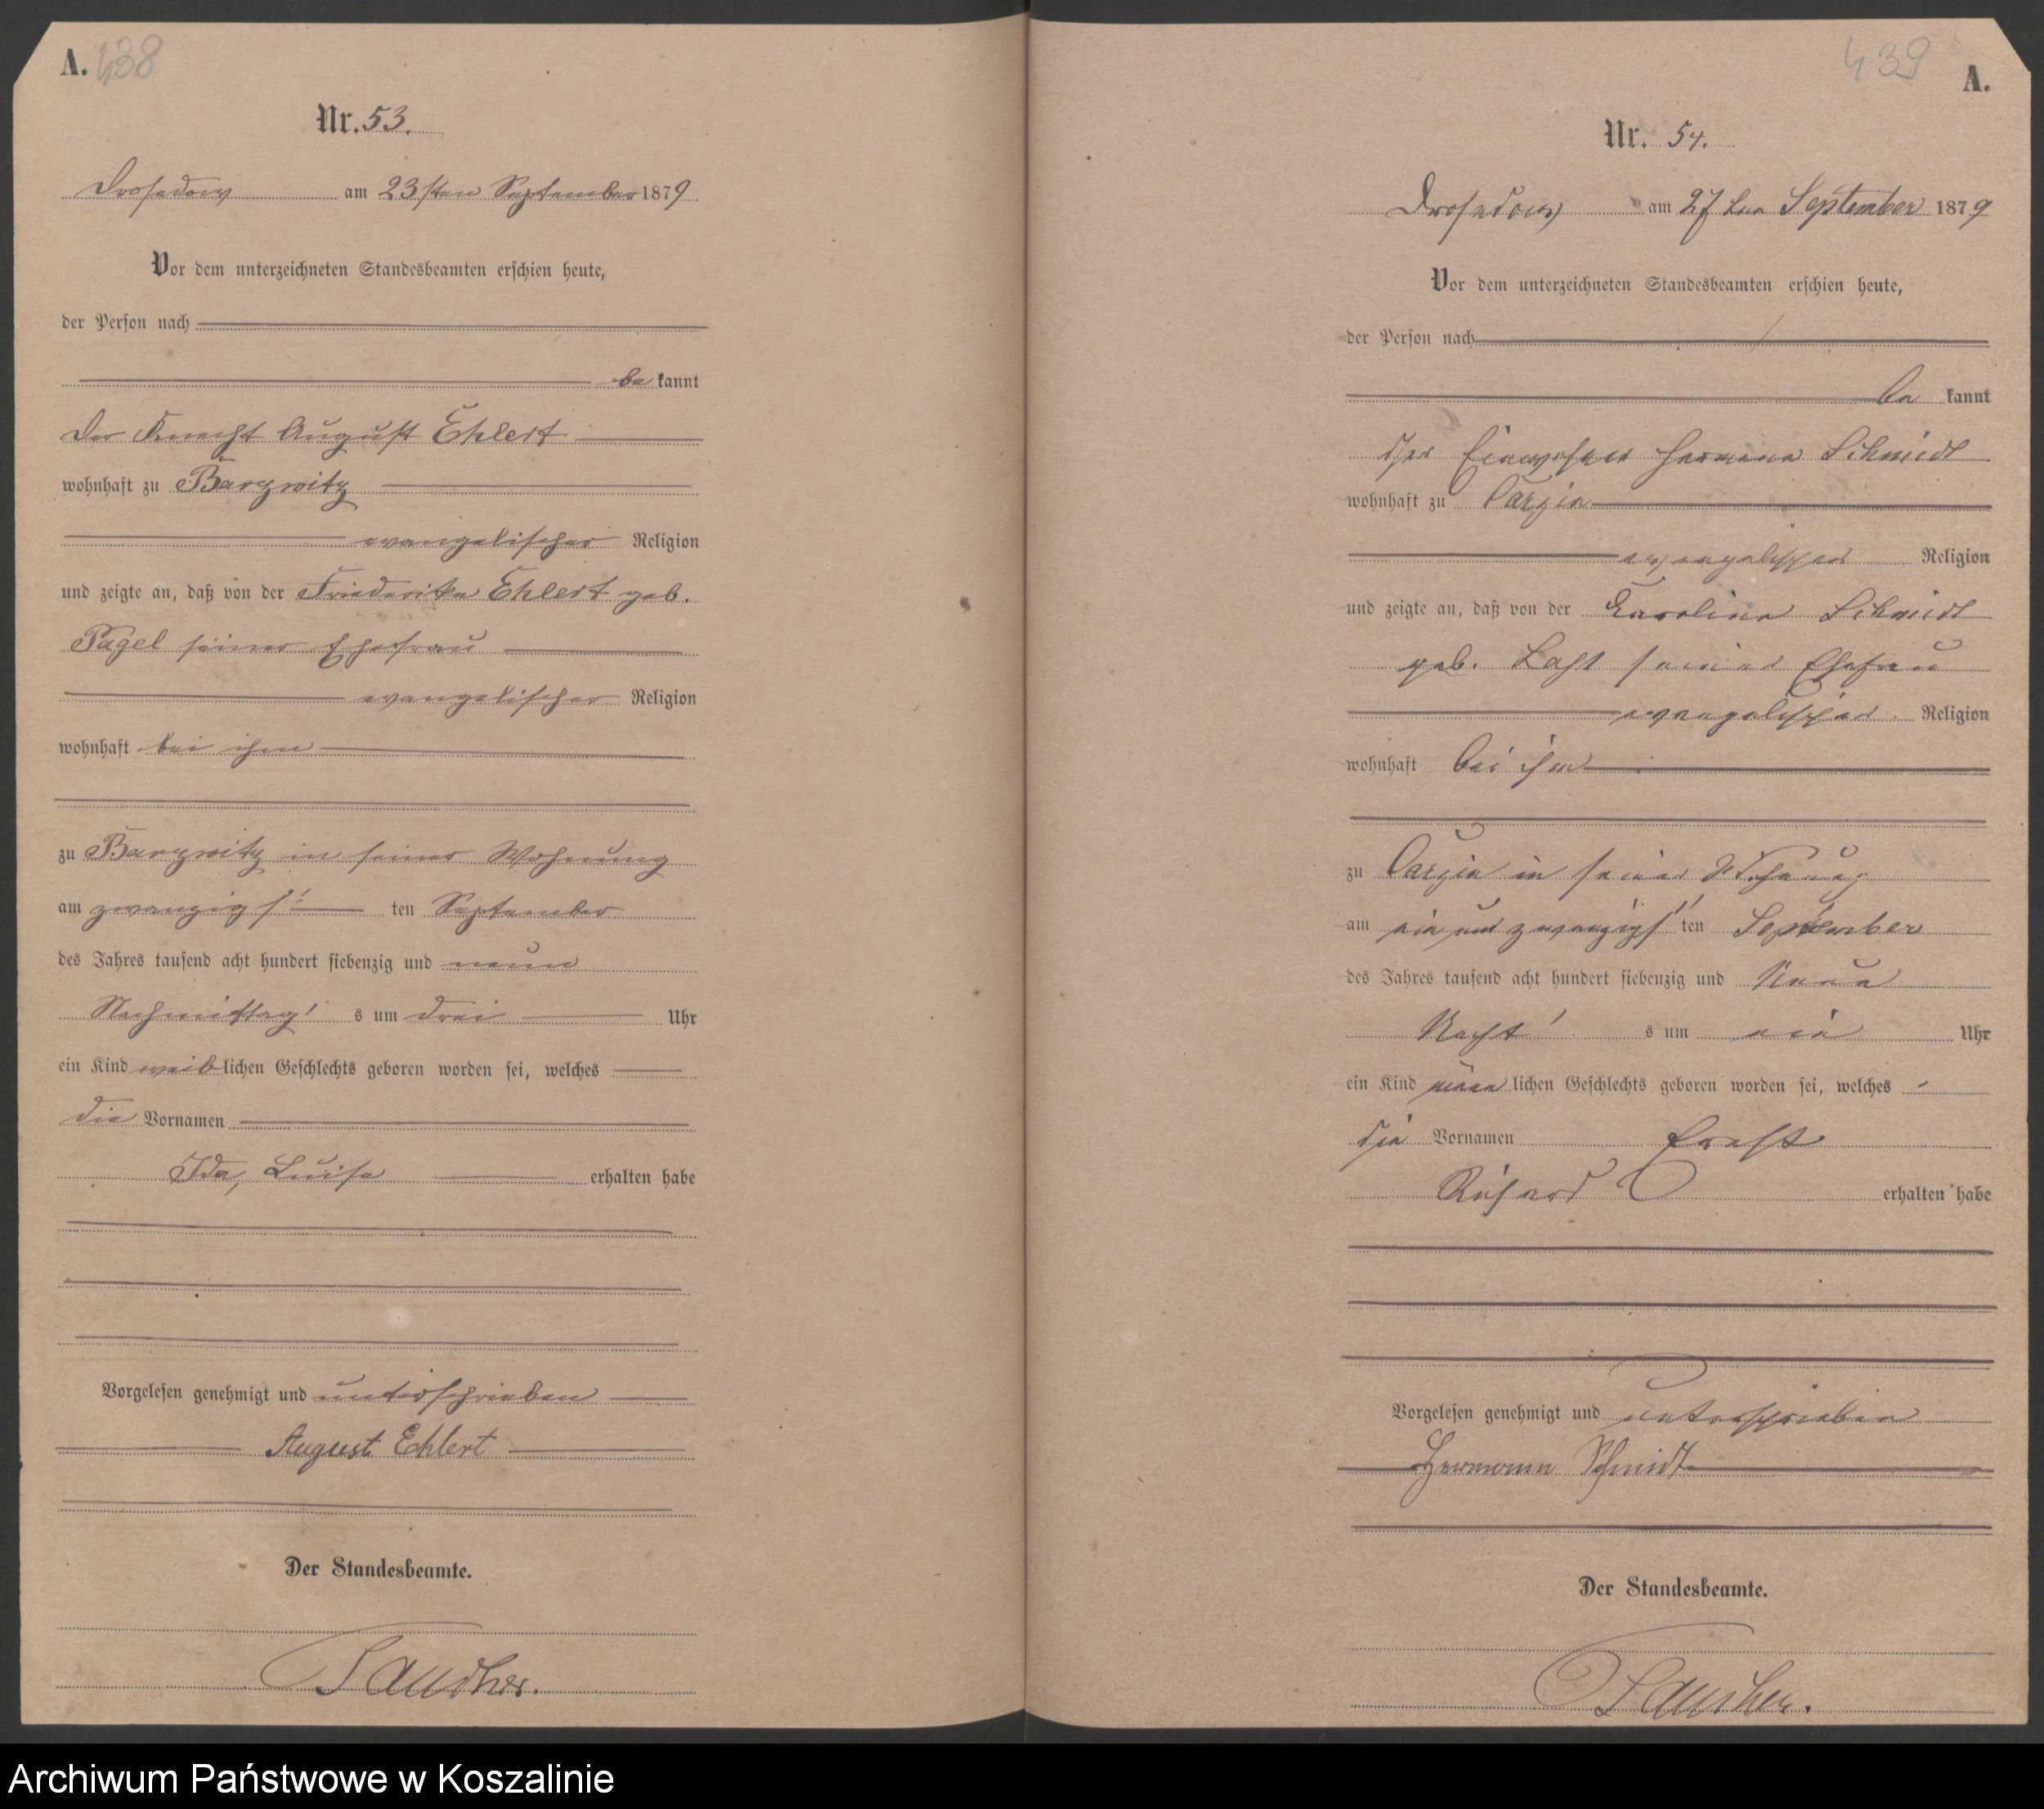 A. 438
Nr. 53.
Drosedow am 23sten September 1879
Vor dem unterzeichneten Standesbeamten erschien heute,
der Person nach
be kannt
Der Knecht August Ehlert
wohnhaft zu Barzwitz
evangelischer Religion
und zeigte an, daß von der Friederike Ehlert geb.
Pagel seiner Ehefrau
evangelischer Religion
wohnhaft bei ihm
zu Barzwitz in seiner Wohnung
am zwanzigs ten September
des Jahres tausend acht hundert siebenzig und neun
Nachmittag s um drei Uhr
ein Kind weiblichen Geschlechts geboren worden sei, welches
die Vornamen
Ida, Luise erhalten habe
Vorgelesen genehmigt und unterschrieben
August Ehlert
Der Standesbeamte.
439 A.
Nr. 54.
Drosedow am 27ten September 1879
Vor dem unterzeichneten Standesbeamten erschien heute,
der Person nach
be kannt
Der Einwohner Hermann Schmidt
wohnhaft zu
evangelischer Religion
und zeigte an, daß von der Karoline Schmidt
geb. seiner Ehefrau
evangelischer Religion
wohnhaft bei ihm
zu in seiner Wohnung
am ein und zwanzigs ten September
des Jahres tausend acht hundert siebenzig und Neun
Nacht s um ein Uhr
ein Kind männlichen Geschlechts geboren worden sei, welches
die Vornamen Ernst
Richard erhalten habe
Vorgelesen genehmigt und unterschrieben
Hermann Schmidt
Der Standesbeamte.
Archiwum Państwowe w Koszalinie